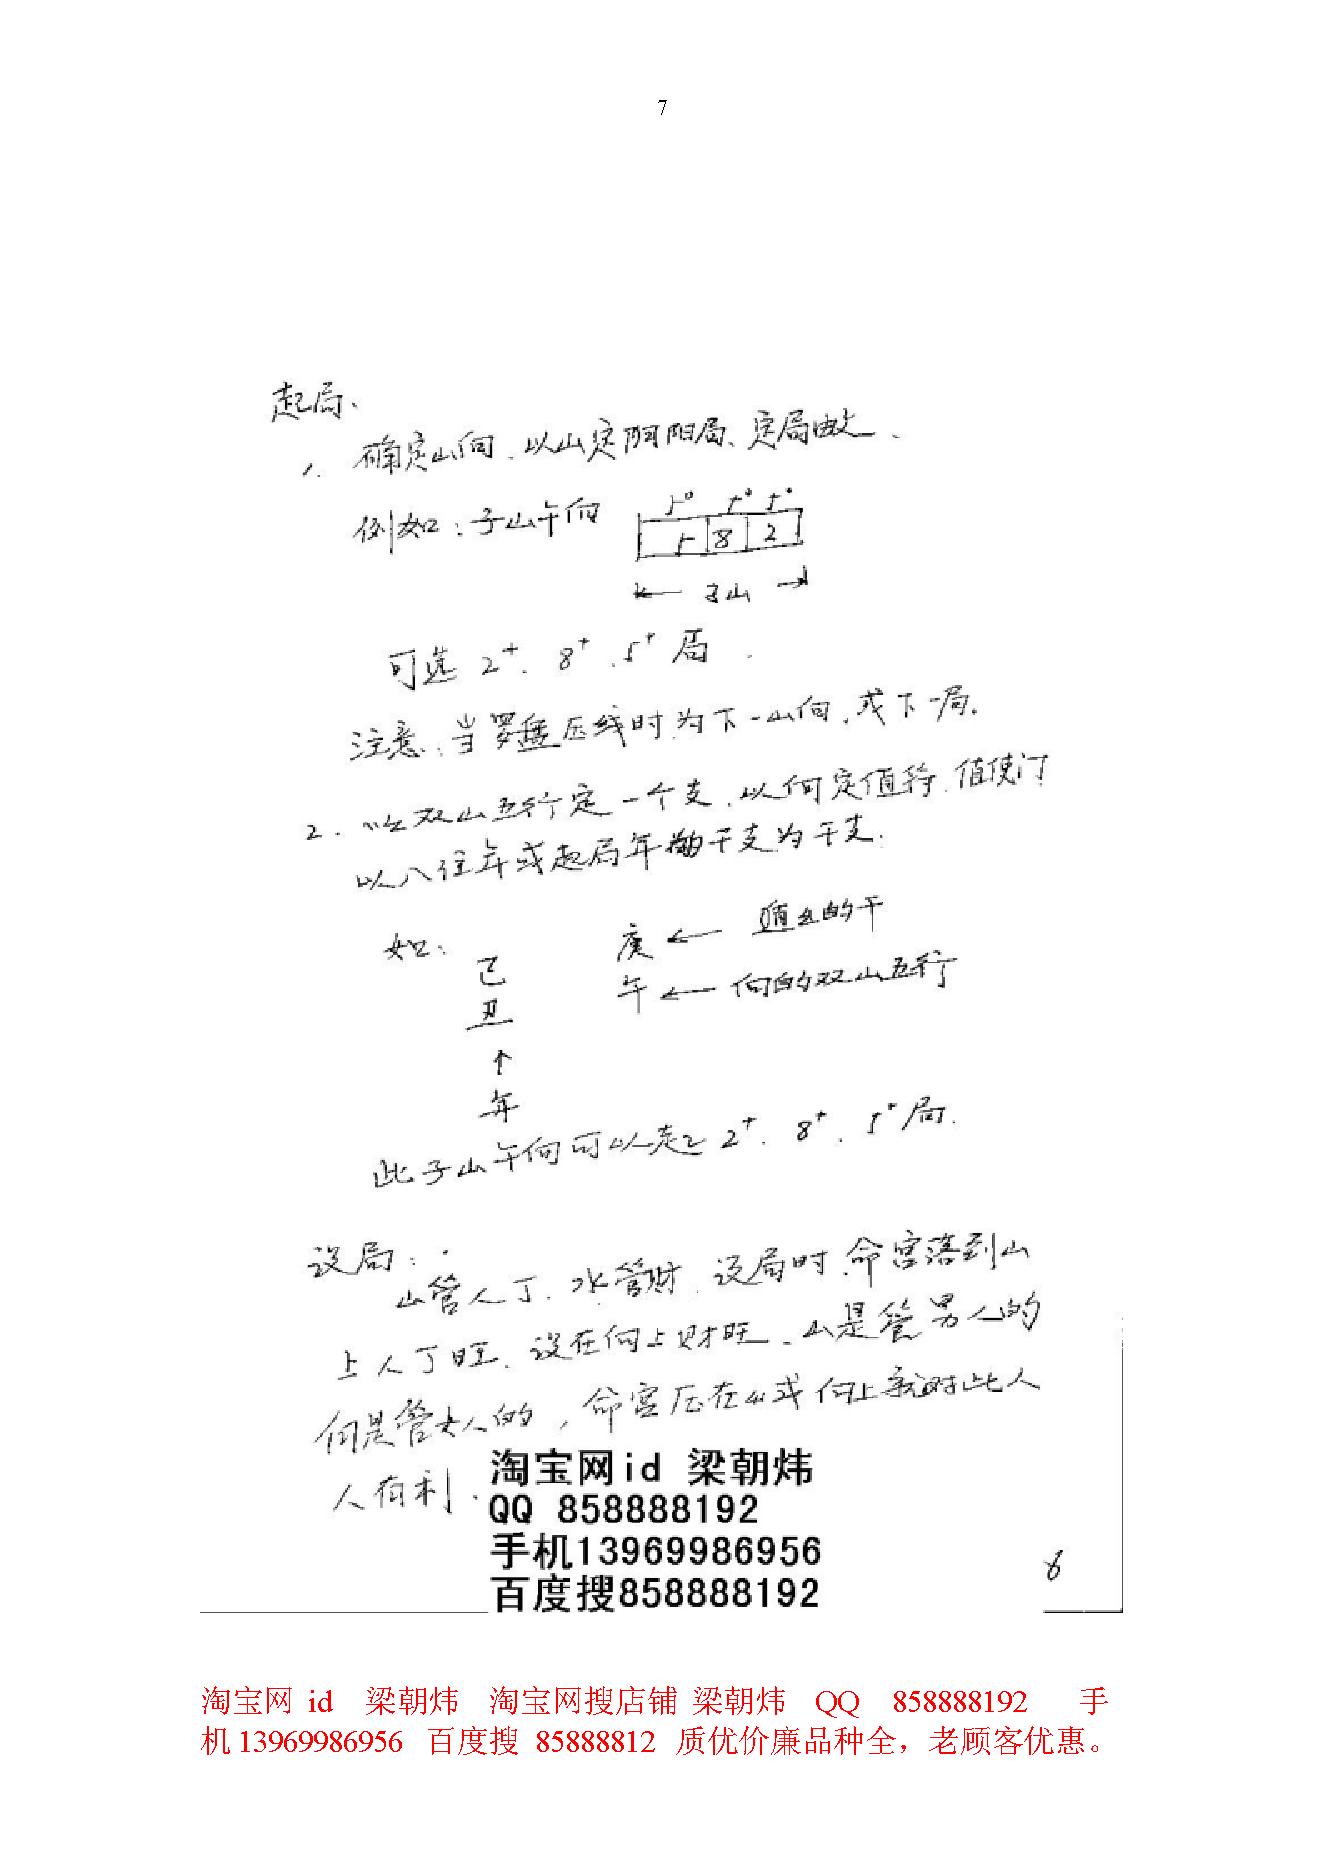 7
起局、
1. 确定山向、以山定阴阳局、定局
例如：子山午向
5° 5° 5°
5 8 2
← 子山 →
可选 2⁺、8⁺、5⁺ 局.
注意：当罗盘压线时为下一山向、或下一局.
2. 以双山五行定一个支、以何定值符、值使门
以八住年或起局年的干支为干支.
如: 己丑 ↑ 年
庚 ← 遁出的干
午 ← 向的双山五行
此子山午向可以走2⁺、8⁺、5⁺局.
设局：
山管人丁、水管财、设局时、命宫落到山
上人丁旺、设在向上财旺、山是管男人的
向是管女人的，命宫压在山或向上就对此人
人有利.
淘宝网id 梁朝炜
QQ 858888192
手机13969986956
百度搜858888192
6
淘宝网 id 梁朝炜 淘宝网搜店铺 梁朝炜 QQ 858888192 手
机 13969986956 百度搜 85888812 质优价廉品种全，老顾客优惠。